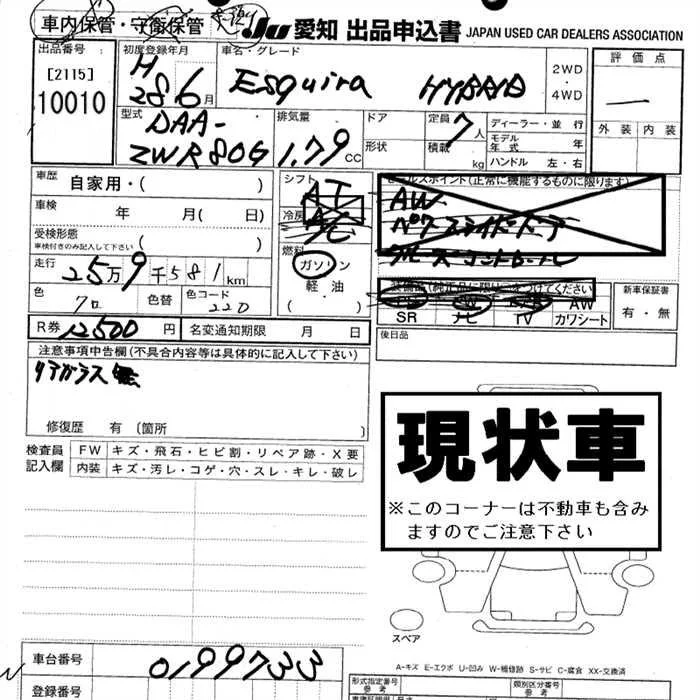 車内保管・守衛保管
JU 愛知 出品申込書 JAPAN USED CAR DEALERS ASSOCIATION
出品番号
[2115]
10010
初度登録年月
H
28 6月
車名・グレード
Esquira HYBRID
2WD
・
4WD
評価点
—
外装 内装
型式
DAA-
ZWR80G
排気量
1.79 CC
ドア
形状
定員 7人
積載 kg
ディーラー・並行
モデル年式 年
ハンドル 左・右
車歴 自家用・( )
車検 年 月( 日)
受検形態
車検付きのみ記入して下さい ( )
走行 25万9千581km
色 クロ 色替 色コード 220
シフト
AT
冷房
A/C
燃料
ガソリン
軽油
( )
セールスポイント(正常に機能するものに限ります)
AW
パワースライドドア
装備品(純正品に限り○をつけてください)
AW
SR ナビ TV カワシート
新車保証書
有・無
R券 12500円 名変通知期限 月 日
後日品
注意事項申告欄(不具合内容等は具体的に記入して下さい)
リアガラス無
修復歴 有 〔箇所 〕
検査員
記入欄
FW キズ・飛石・ヒビ割・リペア跡・X要
内装 キズ・汚レ・コゲ・穴・スレ・キレ・破レ
現状車
※このコーナーは不動車も含み
ますのでご注意下さい
スペア
A-キズ E-エクボ U-凹み W-補修跡 S-サビ C-腐食 XX-交換済
車台番号 0199733
登録番号
形式指定番号
参考
類別区分番号
参考